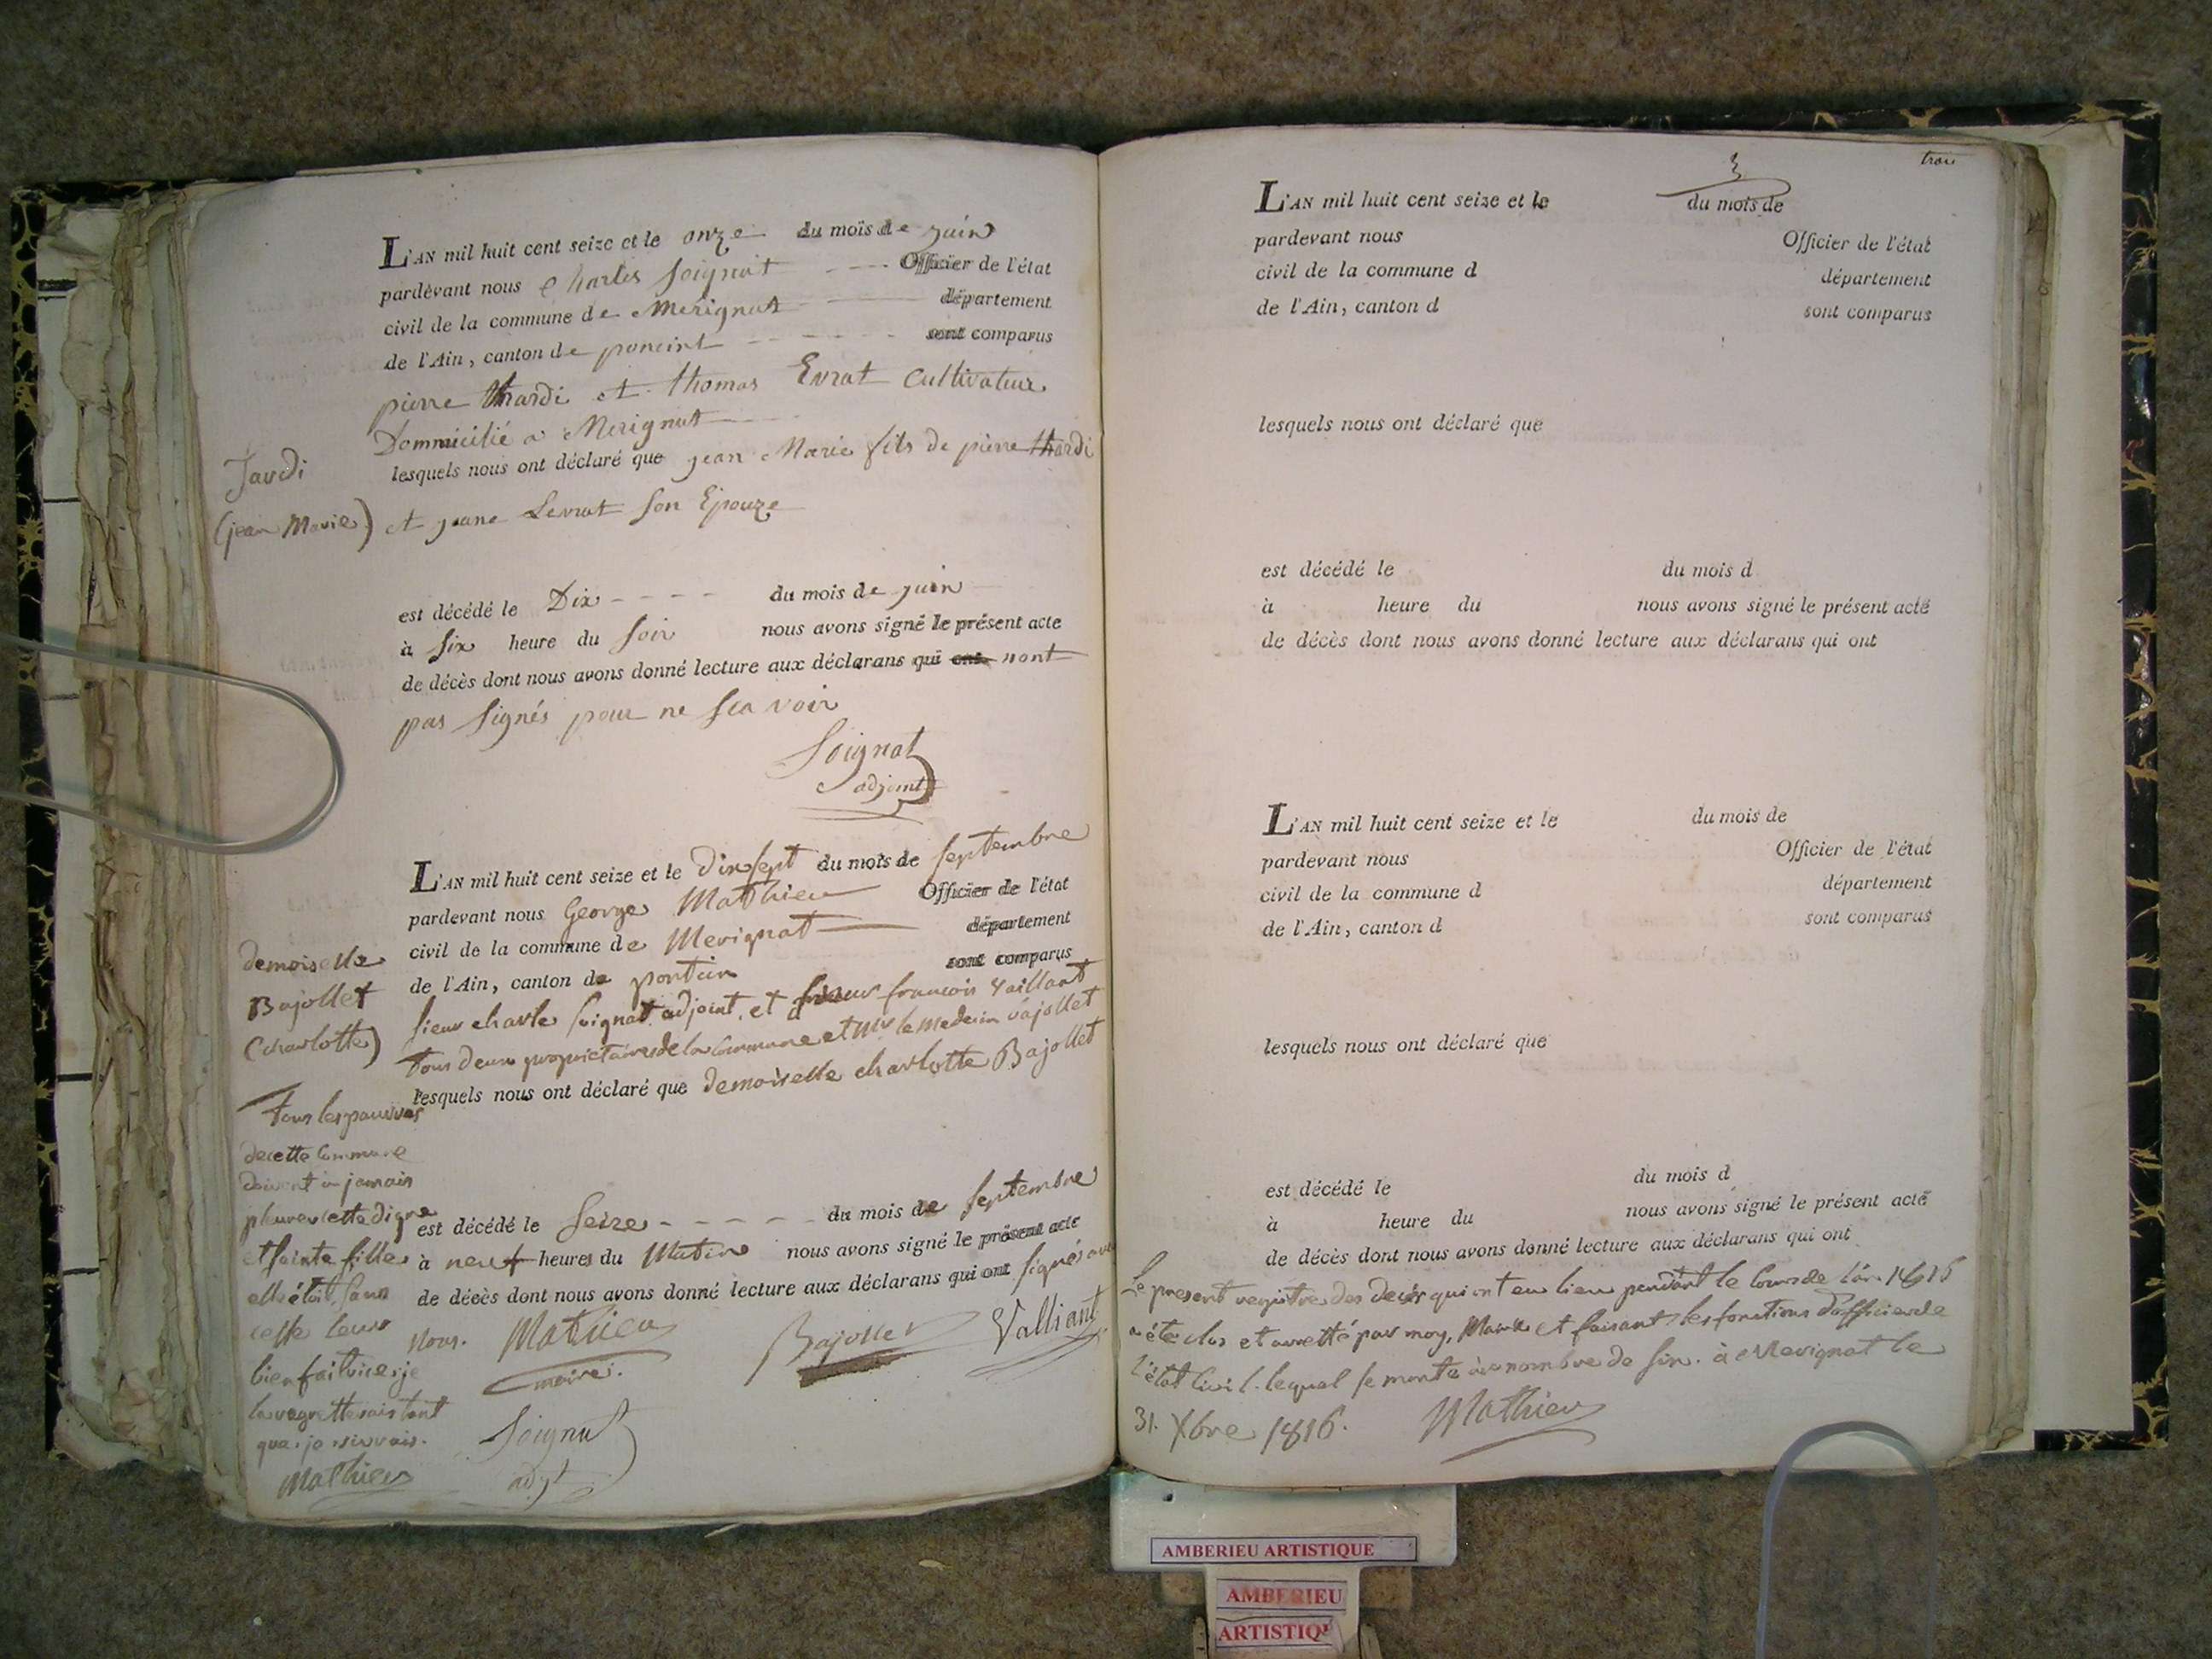 L'AN mil huit cent seize et le onze du mois de juin
pardevant nous Charles Soignat Officier de l'état
civil de la commune de Merignat département
de l'Ain, canton de poncint sont comparus
pierre thardi et thomas Evrat Cultivateur
Dommicilié a Merignat
lesquels nous ont déclaré que jean Marie fils de pierre thardi
et jeane Levrat son Epouze
Jardi
(jean Marie)
est décédé le Dix du mois de juin
à six heure du soir nous avons signé le présent acte
de décès dont nous avons donné lecture aux déclarans qui ont nont
pas signés pour ne sca voir
Soignat
adjoint
L'AN mil huit cent seize et le dix sept du mois de septembre
pardevant nous George Mathieu Officier de l'état
civil de la commune de Merignat département
de l'Ain, canton de pontcin sont comparus
sieur charle soignat adjoint, et sieur francois vaillant
tous deux proprietaires de la Commune et mr le medecin bajollet
lesquels nous ont déclaré que demoiselle charlotte Bajollet
demoiselle
Bajollet
(charlotte)
Tous les pauvres
de cette Commune
doivent a jamais
pleurer cette digne
et sainte fille
elle étoit sans
cesse leur
bienfaitrice je
la regretterais tant
que je vivrais.
Mathieu
est décédé le seize du mois de septembre
à neuf heures du Matin nous avons signé le présent acte
de décès dont nous avons donné lecture aux déclarans qui ont signés avec
nous. Mathieu Bajollet Valliant
maire.
Soignat
adjt
3 trois
L'AN mil huit cent seize et le du mois de
pardevant nous Officier de l'état
civil de la commune d département
de l'Ain, canton d sont comparus
lesquels nous ont déclaré que
est décédé le du mois d
à heure du nous avons signé le présent acte
de décès dont nous avons donné lecture aux déclarans qui ont
L'AN mil huit cent seize et le du mois de
pardevant nous Officier de l'état
civil de la commune d département
de l'Ain, canton d sont comparus
lesquels nous ont déclaré que
est décédé le du mois d
à heure du nous avons signé le présent acte
de décès dont nous avons donné lecture aux déclarans qui ont
Le present registre des decès qui ont eu lieu pendant le Cours de l'an 1816
a été clos et arretté par moy, Maire et faisant les fonctions d'officier de
l'état Civil. lequel se monte au nombre de six. à Merignat le
31. Xbre 1816. Mathieu
AMBERIEU ARTISTIQUE
AMBERIEU
ARTISTIQU